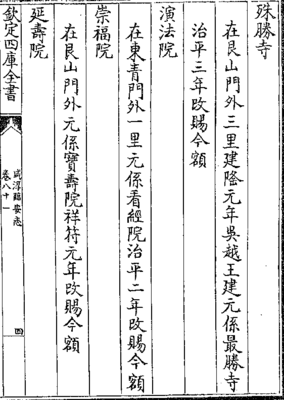 殊勝寺
在艮山門外三里建隆元年吳越王建元係最勝寺
治平三年改賜今額
演法院
在東青門外一里元係看經院治平二年改賜今額
崇福院
在艮山門外元係寶壽院祥符元年改賜今額
延壽院
欽定四庫全書
咸淳臨安志
卷八十一
四